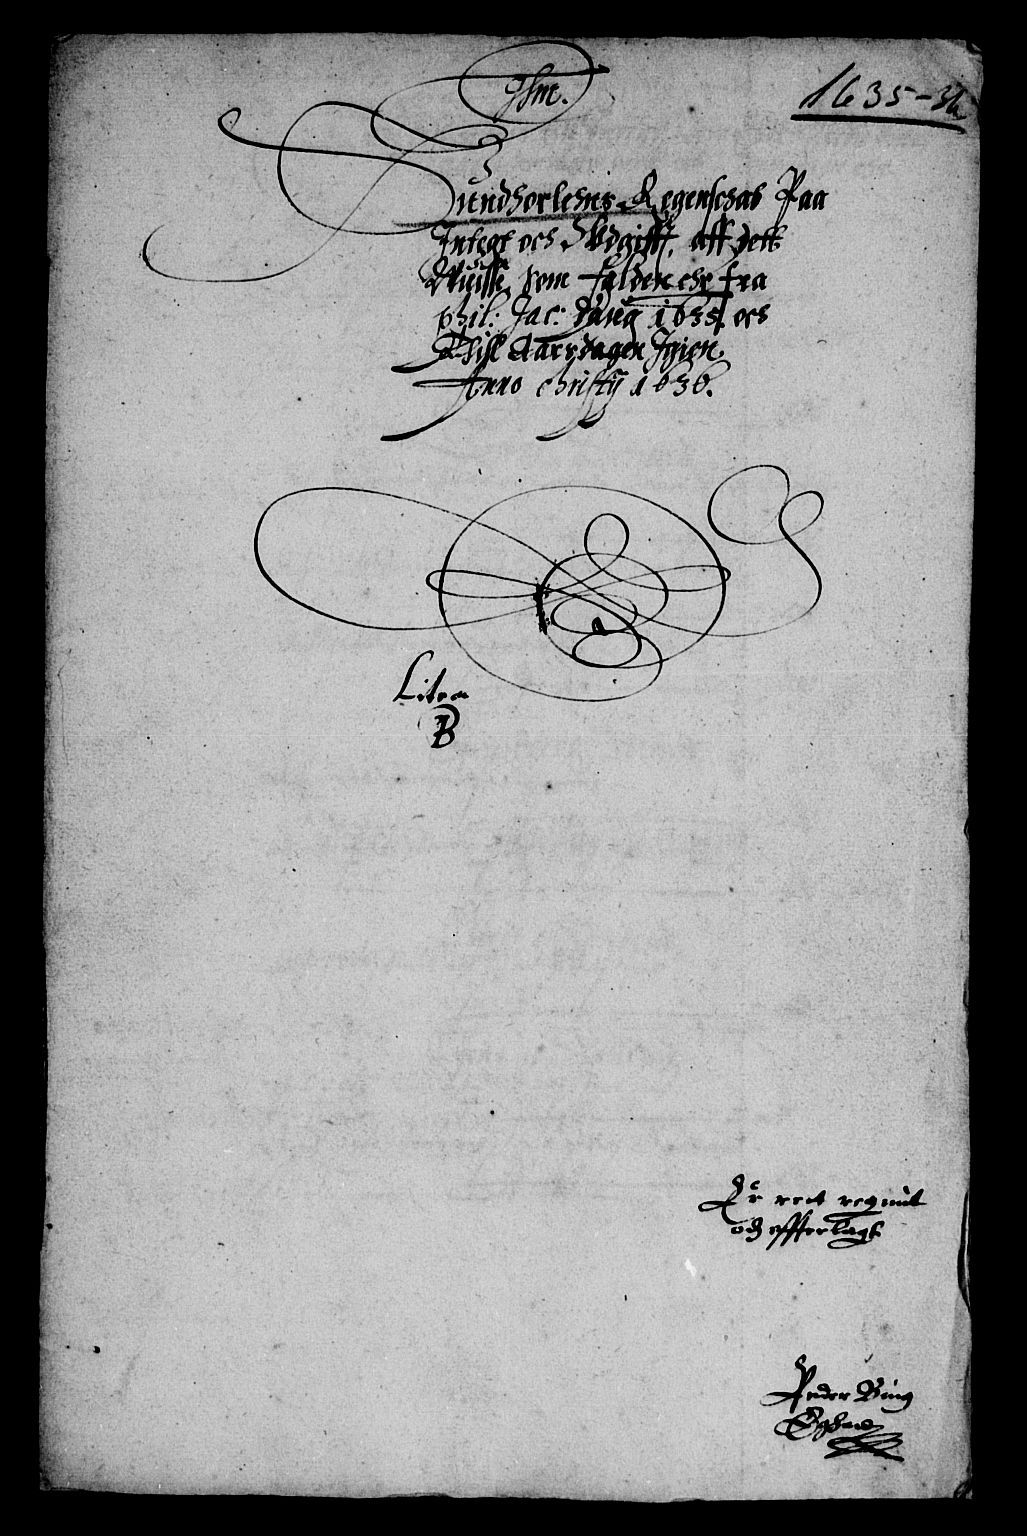 1635-36
Ihm.
Sundhorlehns Regenschab Paa
Integt och Wdgifft, aff dett
Wuisse, som falden ehr fra
phil: Jac: daug 1635. och
Thisk Aarsdagen Igien
Anno christy 1636.
Litra
B
Er ret regnit
och effterlagt
Peder Bing